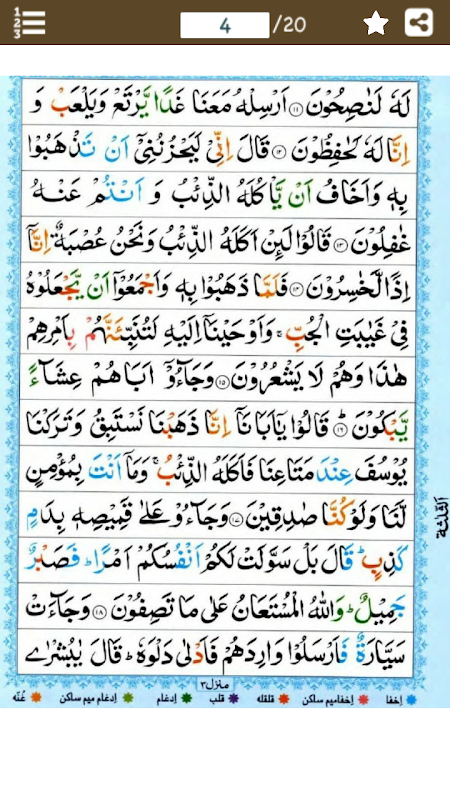 123
4 /20
لَهٗ لَنٰصِحُوْنَ ۝۱۱ اَرْسِلْهُ مَعَنَا غَدًا يَّرْتَعْ وَيَلْعَبْ وَ
اِنَّا لَهٗ لَحٰفِظُوْنَ ۝۱۲ قَالَ اِنِّيْ لَيَحْزُنُنِيْۤ اَنْ تَذْهَبُوْا
بِهٖ وَاَخَافُ اَنْ يَّاْكُلَهُ الذِّئْبُ وَ اَنْتُمْ عَنْهُ
غٰفِلُوْنَ ۝۱۳ قَالُوْا لَئِنْ اَكَلَهُ الذِّئْبُ وَنَحْنُ عُصْبَةٌ اِنَّاۤ
اِذًا لَّخٰسِرُوْنَ ۝۱۴ فَلَمَّا ذَهَبُوْا بِهٖ وَاَجْمَعُوْۤا اَنْ يَّجْعَلُوْهُ
فِيْ غَيٰبَتِ الْجُبِّ ۚ وَاَوْحَيْنَاۤ اِلَيْهِ لَتُنَبِّئَنَّهُمْ بِاَمْرِهِمْ
هٰذَا وَهُمْ لَا يَشْعُرُوْنَ ۝۱۵ وَجَآءُوْۤ اَبَاهُمْ عِشَآءً
يَّبْكُوْنَ ؕ ۝۱۶ قَالُوْا يٰۤاَبَانَاۤ اِنَّا ذَهَبْنَا نَسْتَبِقُ وَتَرَكْنَا
يُوْسُفَ عِنْدَ مَتَاعِنَا فَاَكَلَهُ الذِّئْبُ ۚ وَمَاۤ اَنْتَ بِمُؤْمِنٍ
لَّنَا وَلَوْ كُنَّا صٰدِقِيْنَ ۝۱۷ وَجَآءُوْ عَلٰى قَمِيْصِهٖ بِدَمٍ
كَذِبٍ ؕ قَالَ بَلْ سَوَّلَتْ لَكُمْ اَنْفُسُكُمْ اَمْرًا ؕ فَصَبْرٌ
جَمِيْلٌ ؕ وَاللّٰهُ الْمُسْتَعَانُ عَلٰى مَا تَصِفُوْنَ ۝۱۸ وَجَآءَتْ
سَيَّارَةٌ فَاَرْسَلُوْا وَارِدَهُمْ فَاَدْلٰى دَلْوَهٗ ؕ قَالَ يٰبُشْرٰى
الثلثة
منزل ۳
اخفا اخفا میم ساکن قلقله قلب ادغام ادغام میم ساکن غُنّه